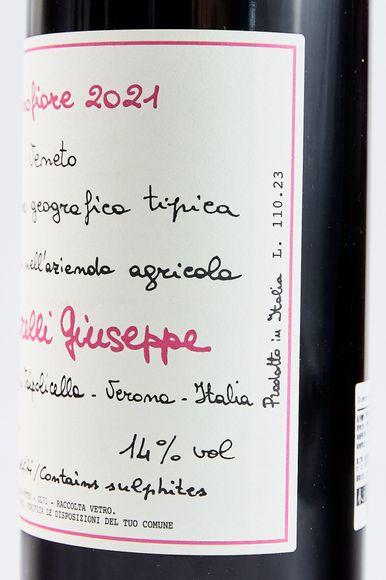 ofiore 2021
Veneto
e geografica tipica
nell'azienda agricola
relli Giuseppe
Valpolicella - Verona - Italia
14% vol
/Contains sulphites
- RACCOLTA VETRO.
LE DISPOSIZIONI DEL TUO COMUNE
Prodotto in Italia L. 110.23